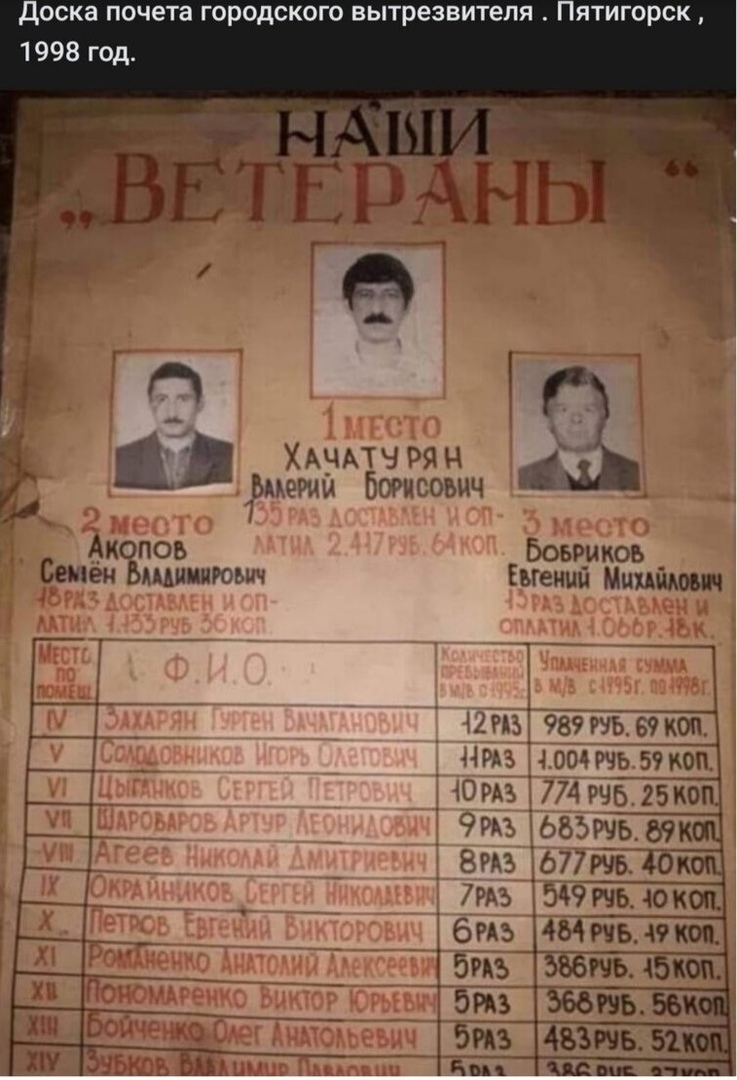 Доска почета городского вытрезвителя . Пятигорск ,
1998 год.
НАШИ
„ВЕТЕРАНЫ“
1 МЕСТО
ХАЧАТУРЯН
ВАЛЕРИЙ БОРИСОВИЧ
135 РАЗ ДОСТАВЛЕН И ОП-
ЛАТИЛ 2.417 РУБ. 64 КОП.
2 место
АКОПОВ
СЕМЁН ВЛАДИМИРОВИЧ
18 РАЗ ДОСТАВЛЕН И ОП-
ЛАТИЛ 1.133 РУБ 36 КОП.
3 место
БОБРИКОВ
ЕВГЕНИЙ МИХАЙЛОВИЧ
13 РАЗ ДОСТАВЛЕН И
ОПЛАТИЛ 1.066 Р. 18 К.
МЕСТО ПО ПОМЕЩ. Ф.И.О. КОЛИЧЕСТВО ПРЕБЫВАНИЙ В М/В С 1995г. УПЛАЧЕННАЯ СУММА В М/В С 1995г. ПО 1998г.
IV ЗАХАРЯН ГУРГЕН ВАЧАГАНОВИЧ 12 РАЗ 989 РУБ. 69 КОП.
V СОЛОДОВНИКОВ ИГОРЬ ОЛЕГОВИЧ 11 РАЗ 1.004 РУБ. 59 КОП.
VI ЦЫГАНКОВ СЕРГЕЙ ПЕТРОВИЧ 10 РАЗ 774 РУБ. 25 КОП.
VII ШАРОВАРОВ АРТУР ЛЕОНИДОВИЧ 9 РАЗ 683 РУБ. 89 КОП.
VIII АГЕЕВ НИКОЛАЙ ДМИТРИЕВИЧ 8 РАЗ 677 РУБ. 40 КОП.
IX ОКРАЙНИКОВ СЕРГЕЙ НИКОЛАЕВИЧ 7 РАЗ 549 РУБ. 10 КОП.
X ПЕТРОВ ЕВГЕНИЙ ВИКТОРОВИЧ 6 РАЗ 484 РУБ. 19 КОП.
XI РОМАНЕНКО АНАТОЛИЙ АЛЕКСЕЕВИЧ 5 РАЗ 386 РУБ. 15 КОП.
XII ПОНОМАРЕНКО ВИКТОР ЮРЬЕВИЧ 5 РАЗ 368 РУБ. 56 КОП
XIII БОЙЧЕНКО ОЛЕГ АНАТОЛЬЕВИЧ 5 РАЗ 483 РУБ. 52 КОП.
XIV ЗУБКОВ ВЛАДИМИР ПАВЛОВИЧ 5 РАЗ 386 РУБ. 27 КОП